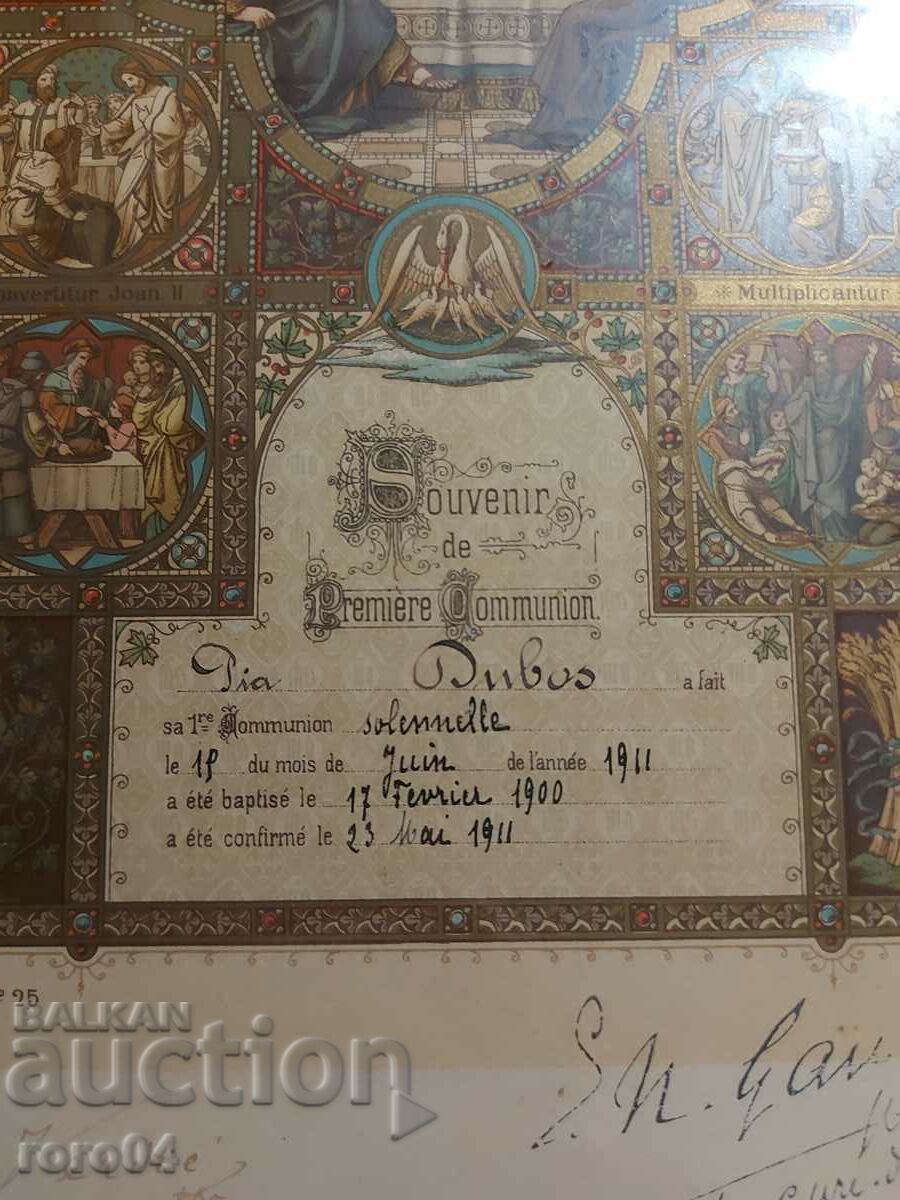 Joan II
Multiplicantur
Souvenir
de
Première Communion.
Pia Dubos a fait
sa 1re Communion solennelle
le 15 du mois de Juin de l'année 1911
a été baptisé le 17 Fevrier 1900
a été confirmé le 23 Mai 1911
25
BALKAN
auction
roro04
E. N. Gau